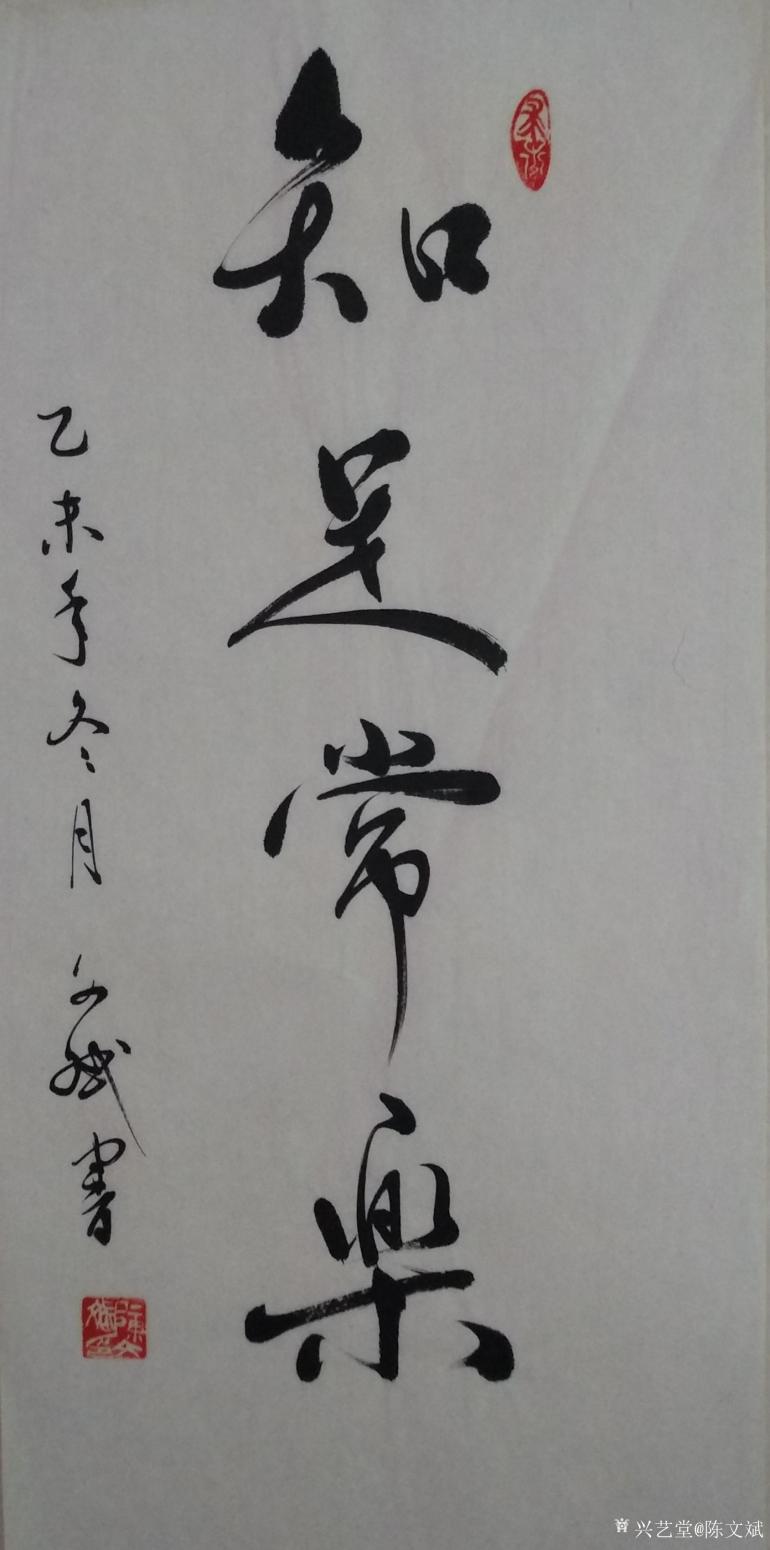 知足常樂
乙未年冬月 文斌書
陳文斌印
兴艺堂@陈文斌